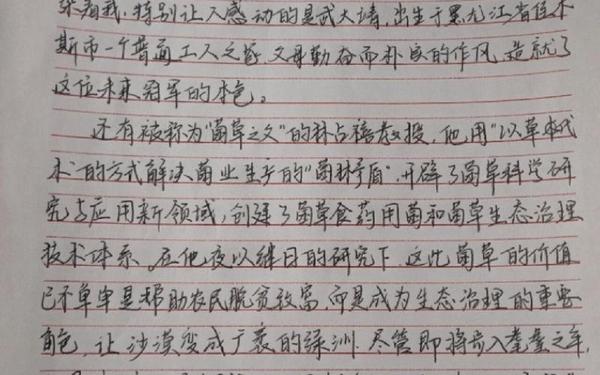 荣翱载，特别让人感动的是武大靖，出生于黑龙江省佳木
斯市一个普通工人之家，父母勤奋而朴实的作风，造就了
这位未来冠军的本色。
还有被称为“菌草之父”的林占熺教授，他用“以草代
木”的方式解决菌业生产的“菌林矛盾”，开辟了菌草科学研
究与应用新领域，创建了菌草食药用菌和菌草生态治理
技术体系。在他夜以继日的研究下，这些菌草的价值
已不单单是帮助农民脱贫致富，而是成为生态治理的重要
角色，让沙漠变成广袤的绿洲。尽管即将步入耄耋之年，